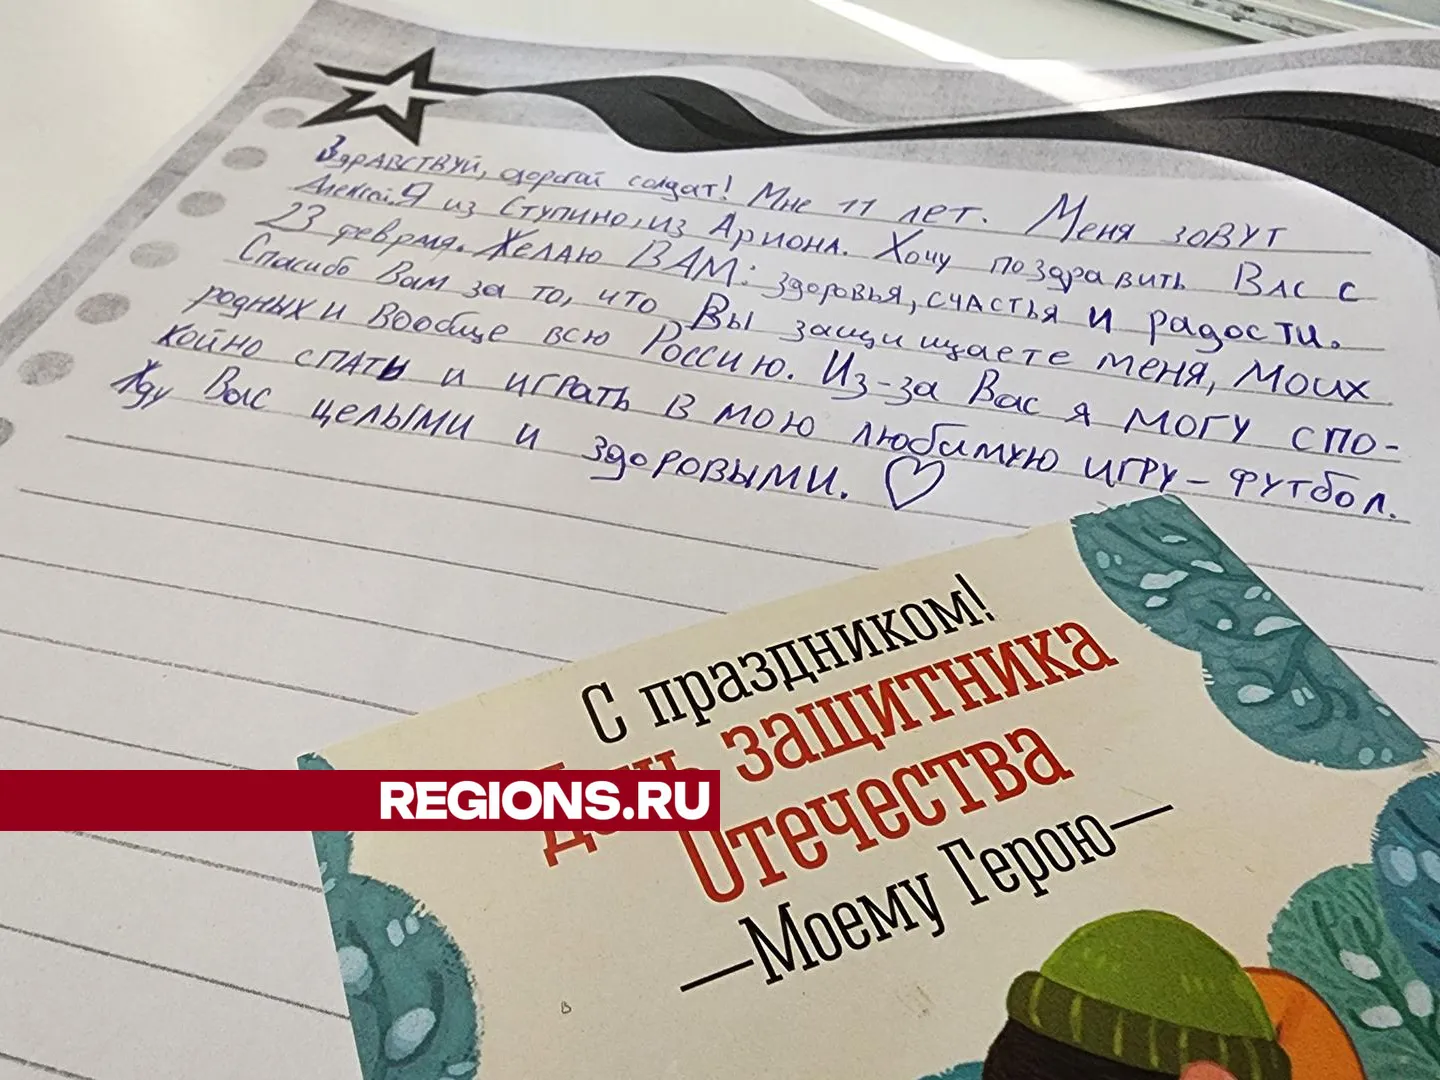 Здравствуй, дорогой солдат! Мне 11 лет. Меня зовут
Алексей. Я из Ступино, из Ариона. Хочу поздравить Вас с
23 февраля. Желаю ВАМ: здоровья, счастья и радости.
Спасибо Вам за то, что Вы защищаете меня, моих
родных и вообще всю Россию. Из-за Вас я могу спо-
койно спать и играть в мою любимую игру - футбол.
Жду Вас целыми и здоровыми. ♡
С праздником!
День защитника
Отечества
—Моему Герою—
REGIONS.RU